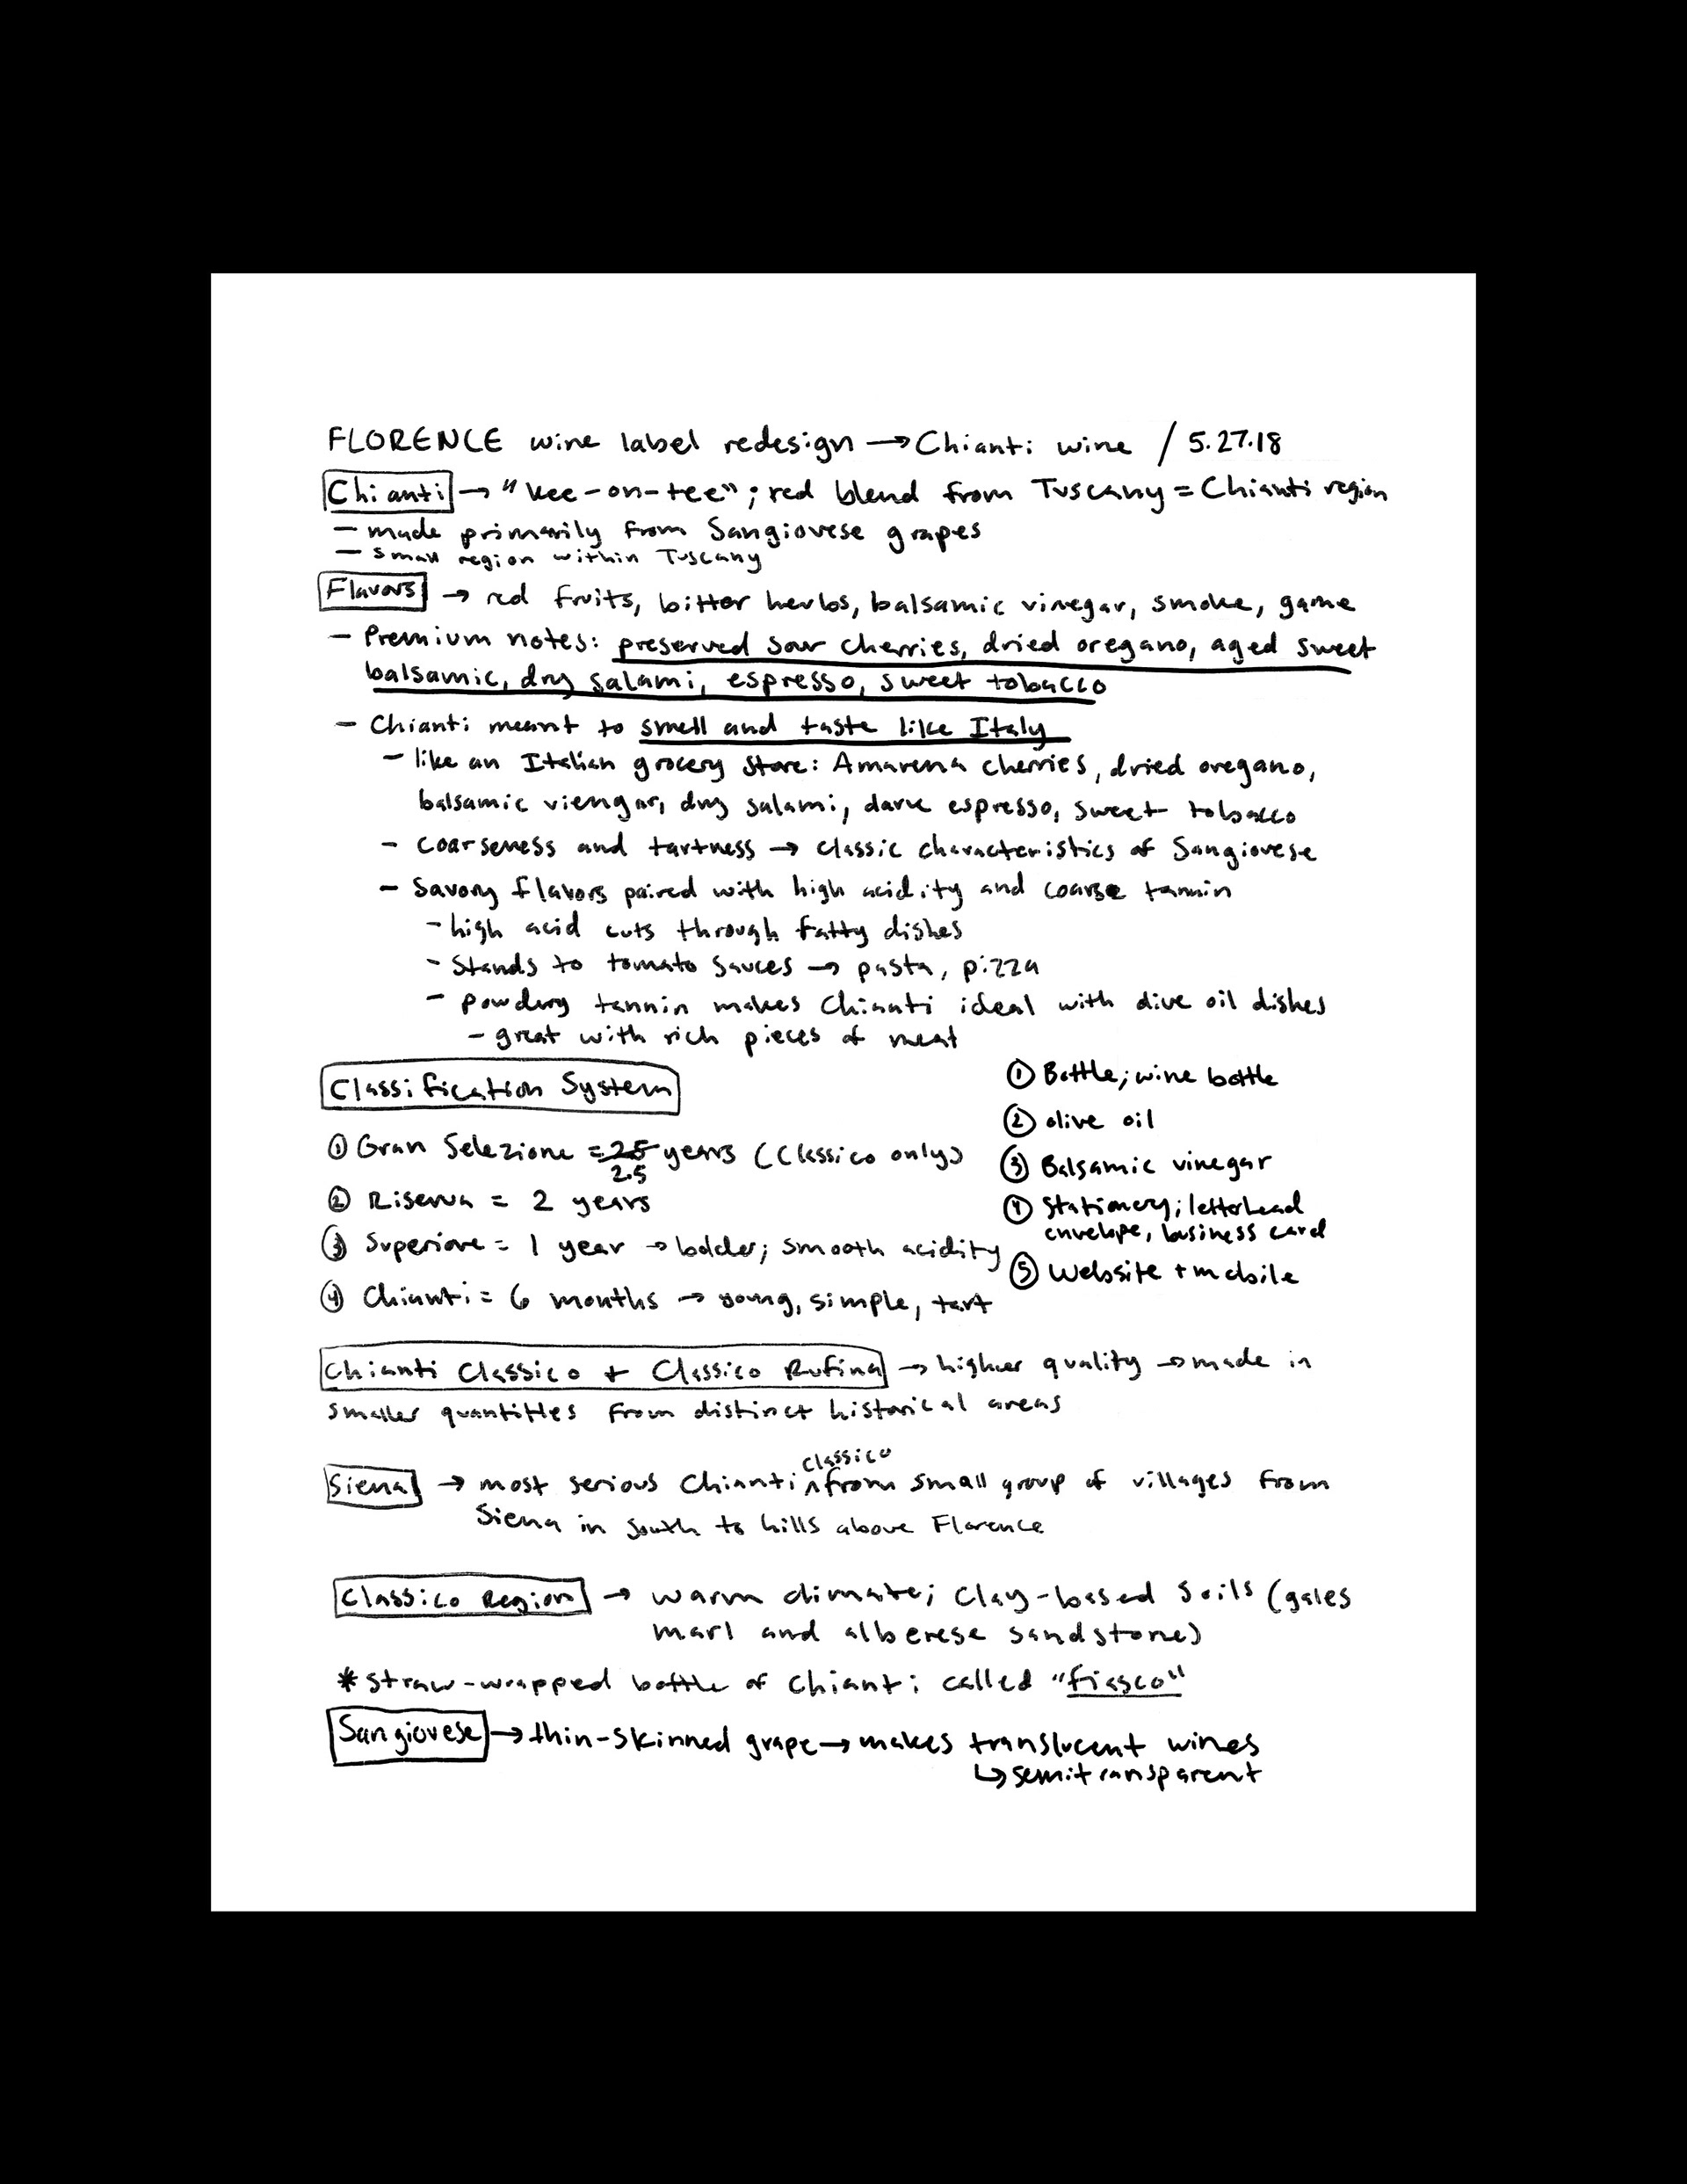 FLORENCE wine label redesign → Chianti wine / 5.27.18
Chianti → "kee-on-tee"; red blend from Tuscany = Chianti region
- made primarily from Sangiovese grapes
- small region within Tuscany
Flavors → red fruits, bitter herbs, balsamic vinegar, smoke, game
- Premium notes: preserved sour cherries, dried oregano, aged sweet
balsamic, dry salami, espresso, sweet tobacco
- Chianti meant to smell and taste like Italy
- like an Italian grocery store: Amarena cherries, dried oregano,
balsamic viengar, dry salami, dark espresso, sweet tobacco
- coarseness and tartness → classic characteristics of Sangiovese
- Savory flavors paired with high acidity and coarse tannin
- high acid cuts through fatty dishes
- Stands to tomato sauces → pasta, pizza
- powdery tannin makes Chianti ideal with olive oil dishes
- great with rich pieces of meat
Classification System
① Gran Selezione = 25 years (Classico only)
2.5
② Riserva = 2 years
③ Superiore = 1 year → bolder; smooth acidity
④ Chianti = 6 months → young, simple, tart
① Bottle; wine bottle
② olive oil
③ Balsamic vinegar
④ Stationery; letterhead
envelope, business card
⑤ Website + mobile
Chianti Classico + Classico Rufina → higher quality → made in
smaller quantities from distinct historical areas
classico
Siena → most serious Chianti ^ from small group of villages from
Siena in south to hills above Florence
Classico Region → warm climate; clay-based soils (gales
marl and alberese sandstone)
* straw-wrapped bottle of Chianti called "fiasco"
Sangiovese → thin-skinned grape → makes translucent wines
↳ semitransparent